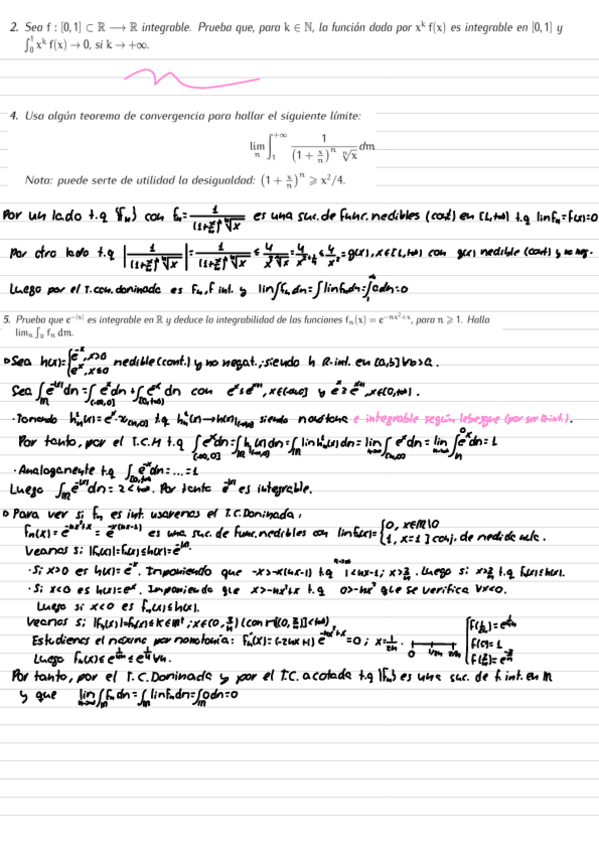 2. Sea f : [0, 1] ⊂ R ⟶ R integrable. Prueba que, para k ∈ N, la función dada por x^k f(x) es integrable en [0, 1] y
∫₀¹ x^k f(x) → 0, si k → +∞.
4. Usa algún teorema de convergencia para hallar el siguiente límite:
lim_n ∫₁^{+∞} 1 / ((1 + x/n)^n ⁿ√x) dm
Nota: puede serte de utilidad la desigualdad: (1 + x/n)^n ⩾ x²/4.
Por un lado t.q {fn} con fn = 1/((1+x/n)^n ⁿ√x) es una suc. de func. medibles (cont) en [1,+∞) t.q lim fn = f(x) =
Por otro lado t.q |1/((1+x/n)^n ⁿ√x)| = 1/((1+x/n)^n ⁿ√x) ≤ 4/(x² ⁿ√x) = ≤ 4/x² = g(x), x∈[1,+∞) con g(x) medible (cont) y no neg.
Luego por el T.con. dominada es fn, f int. y lim ∫ fn dm = ∫ lim fn dm = ∫ 0 dm = 0
5. Prueba que e^{-|x|} es integrable en R y deduce la integrabilidad de las funciones f_n(x) = e^{-nx²+x}, para n ⩾ 1. Halla
lim_n ∫_R f_n dm.
Sea h(x) = { e^{-x}, x>0 ; e^x, x≤0 medible (cont.) y no negat.; siendo h R-int. en [a,b] ∀b>a.
Sea ∫ e^{-|x|} dm = ∫_{(-∞,0]} e^x dm + ∫_{[0,+∞)} e^{-x} dm con
· Tomando siendo monótona e integrable según lebesgue (por ser R-int.).
Por tanto, por el T.C.M t.q
· Analogamente t.q ∫ e^{-x} dm = ... = 1
Luego ∫_R e^{-|x|} dm = 2 < +∞. Por tanto e^{-|x|} es integrable.
Para ver si fn es int. usaremos el T.C.Dominada:
fn(x) = e^{-nx²+x} = e^{-x(nx-1)} es una suc. de func. medibles con lim fn(x) = { 0, x∈R\0 ; 1, x=
Veamos si |fn(x)| = fn(x) ≤ h(x) = e^{-|x|}.
· Si x>0 es h(x) = e^{-x}. Imponiendo que -x > -x(nx-1) t.q 1 < nx-1; x > 2/n. Luego si x > 2/n t.q fn(x) ≤ h(x).
· Si x<0 es h(x) = e^x. Imponiendo que x > -nx²+x t.q 0 > -nx² que se verifica ∀x<0.
Luego si x<0 es fn(x) ≤ h(x).
Veamos si |fn(x)| = fn(x) ≤ K ∈ R⁺; x∈(0, 2/n) (con m([0, 2/n]) < +∞)
Estudiemos el máximo por monotonía: f'n(x) = (-2nx+1) e^{-nx²+x} = 0; x = 1/2n. 0 1/2n 2/n
Luego fn(x) ≤ e^{1/4n} ≤ e^{1/4} ∀n.
Por tanto, por el T.C.Dominada y por el T.C. acotada t.q {fn} es una suc. de f. int. en R
y que lim ∫_R fn dm = ∫_R lim fn dm = ∫_R 0 dm = 0